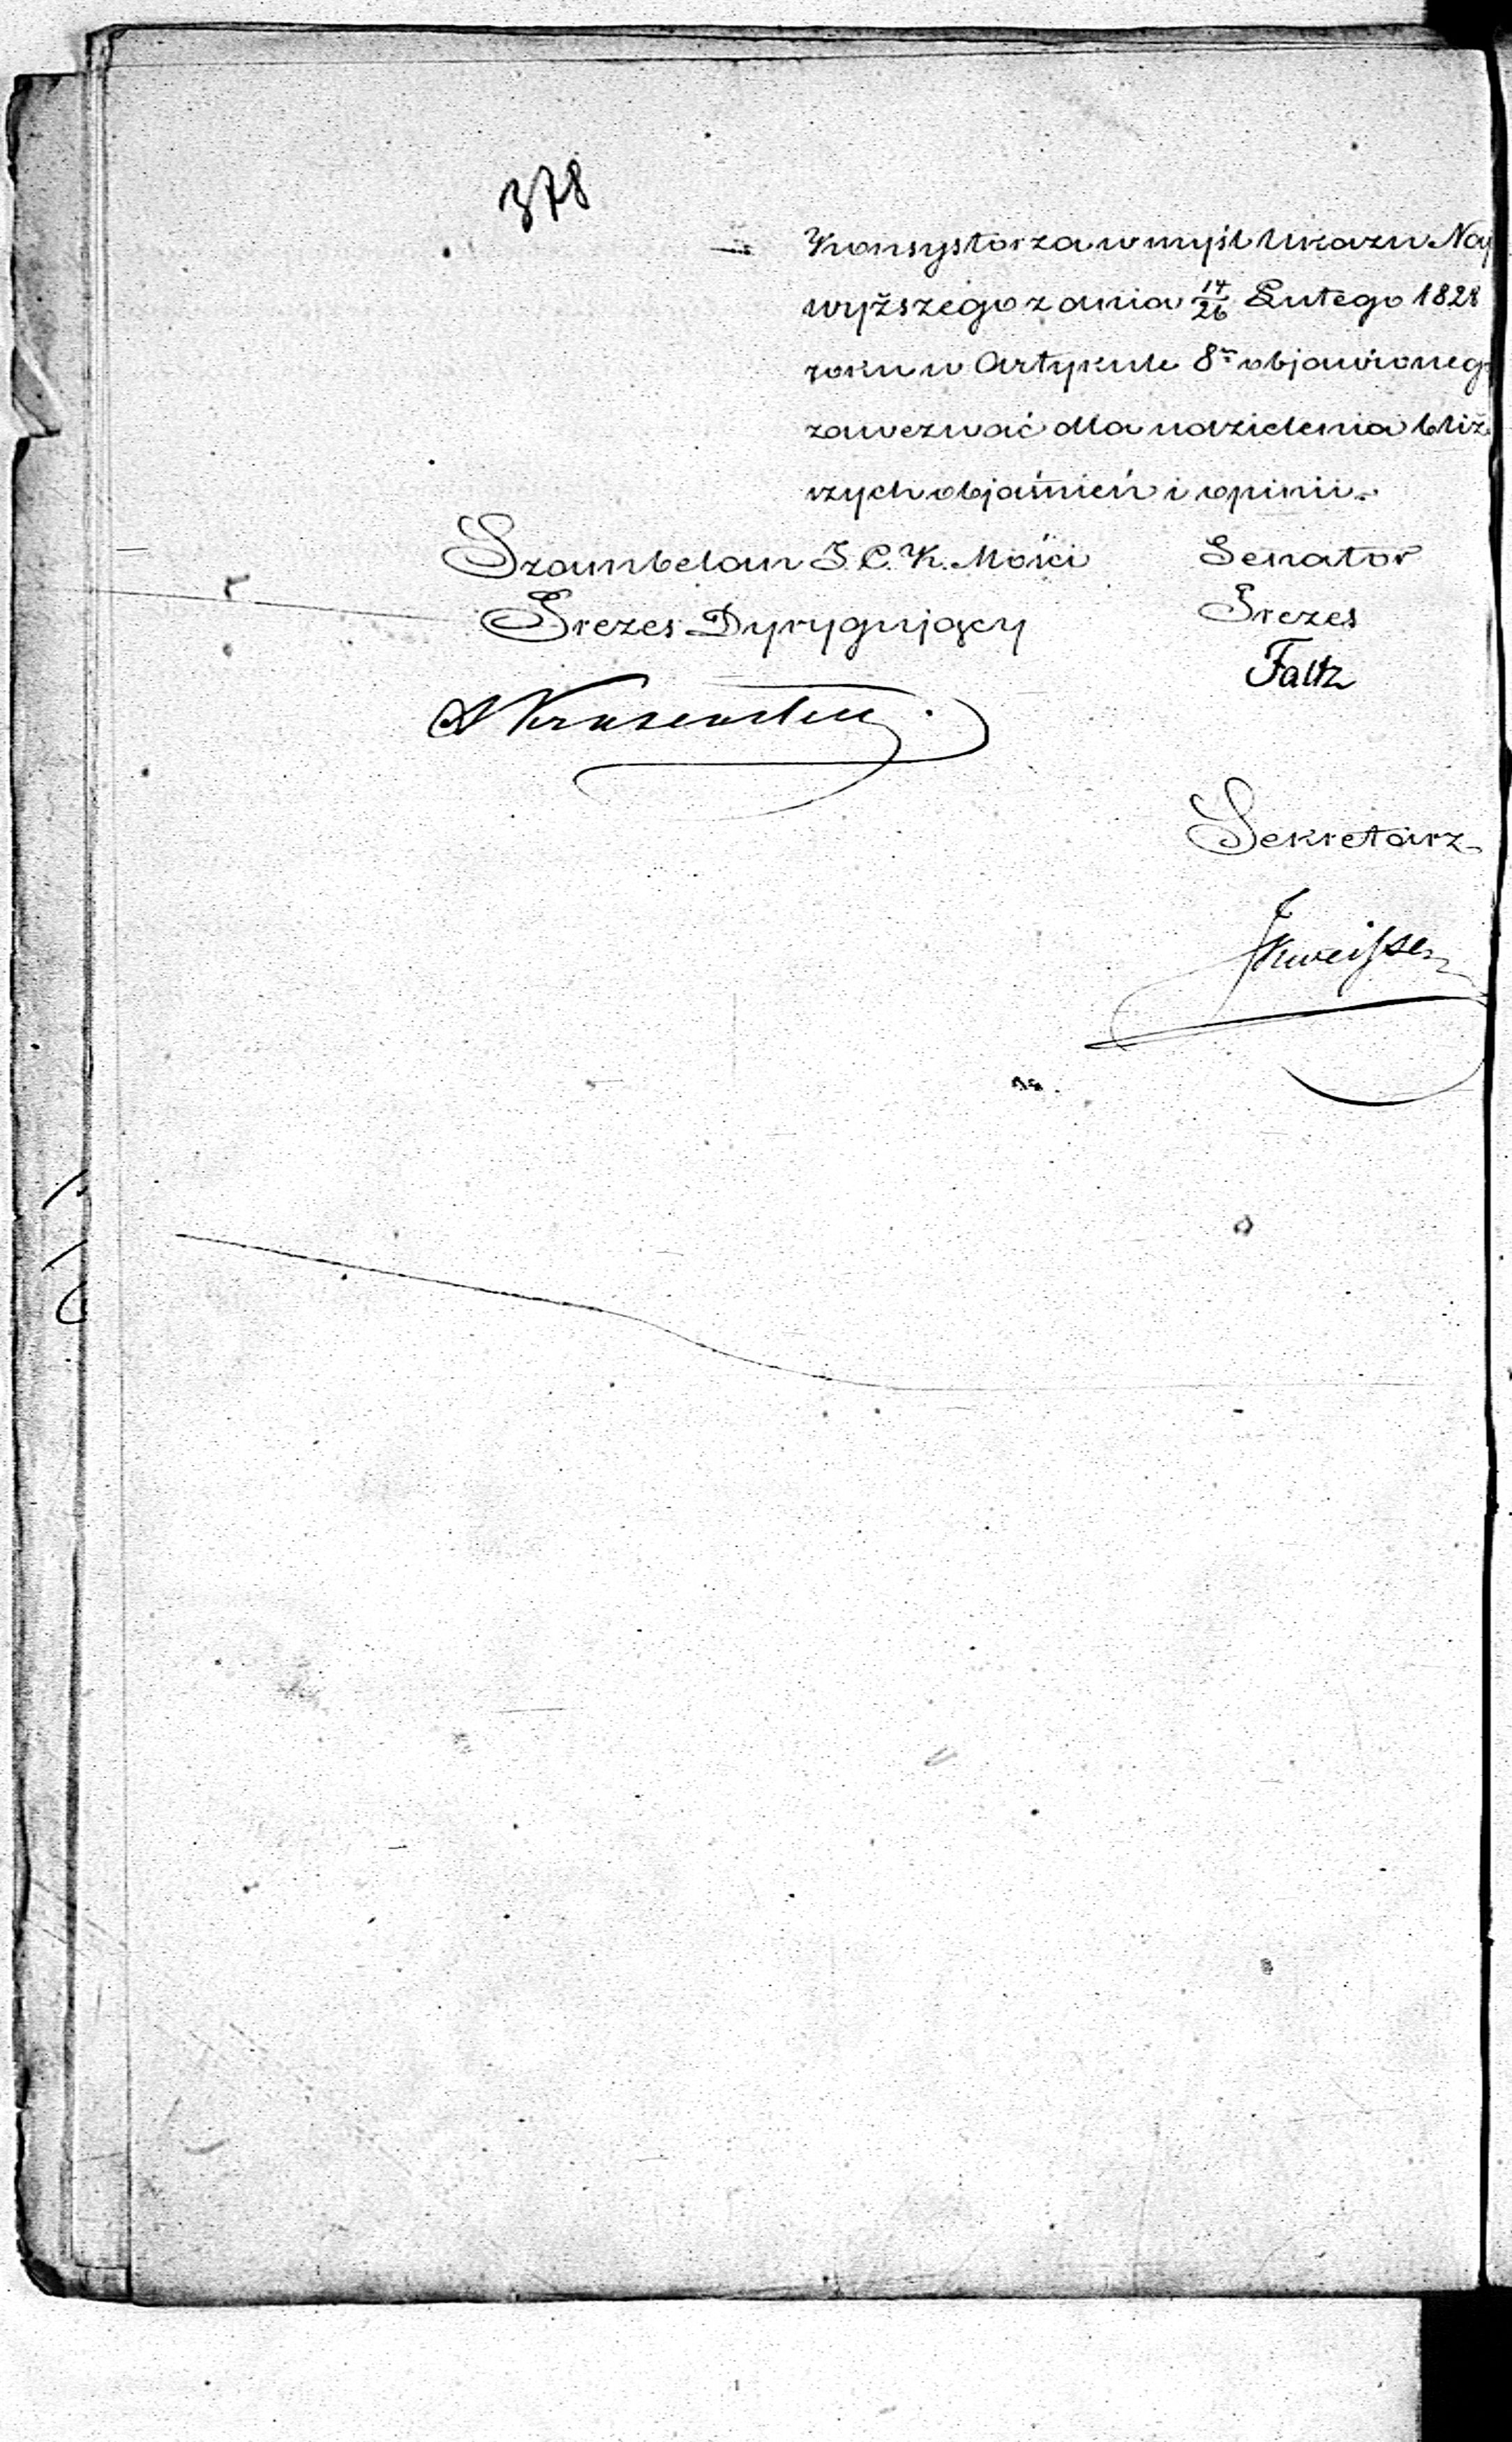 378
Konsystorza w myśl Ukazu Nay
wyższego z dnia 14/26 Lutego 1828
roku w Artykule 8m objawioneg
zawezwać dla udzielenia bliż
szych objaśnień i opinii.
Szambelan J. C. K. Mości Senator
Prezes Dyrygujący Prezes
Faltz
Sekretarz